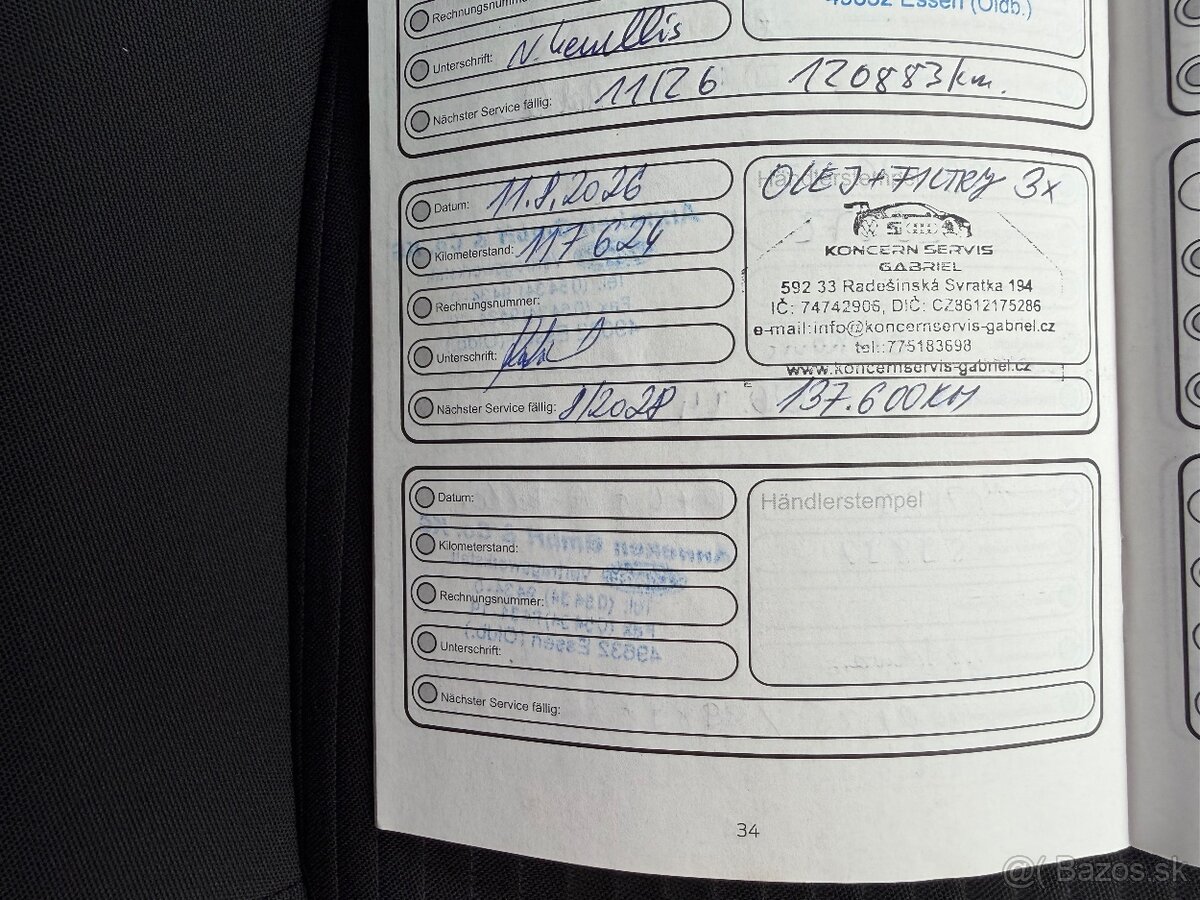 Rechnungsnummer:
49632 Essen (Oldb.)
Unterschrift:
Nächster Service fällig: 11/26 120883 km.
Datum: 11.8.2026
Kilometerstand: 117 624
Rechnungsnummer:
Unterschrift:
Nächster Service fällig: 8/2028 137.600 KM
Händlerstempel
OLEJ + FILTRY 3x
KONCERN SERVIS
GABRIEL
592 33 Radešínská Svratka 194
IČ: 74742906, DIČ: CZ8612175286
e-mail:info@koncernservis-gabriel.cz
tel.:775183698
www.koncernservis-gabriel.cz
Datum:
Kilometerstand:
Rechnungsnummer:
Unterschrift:
Nächster Service fällig:
Händlerstempel
34
Bazos.sk